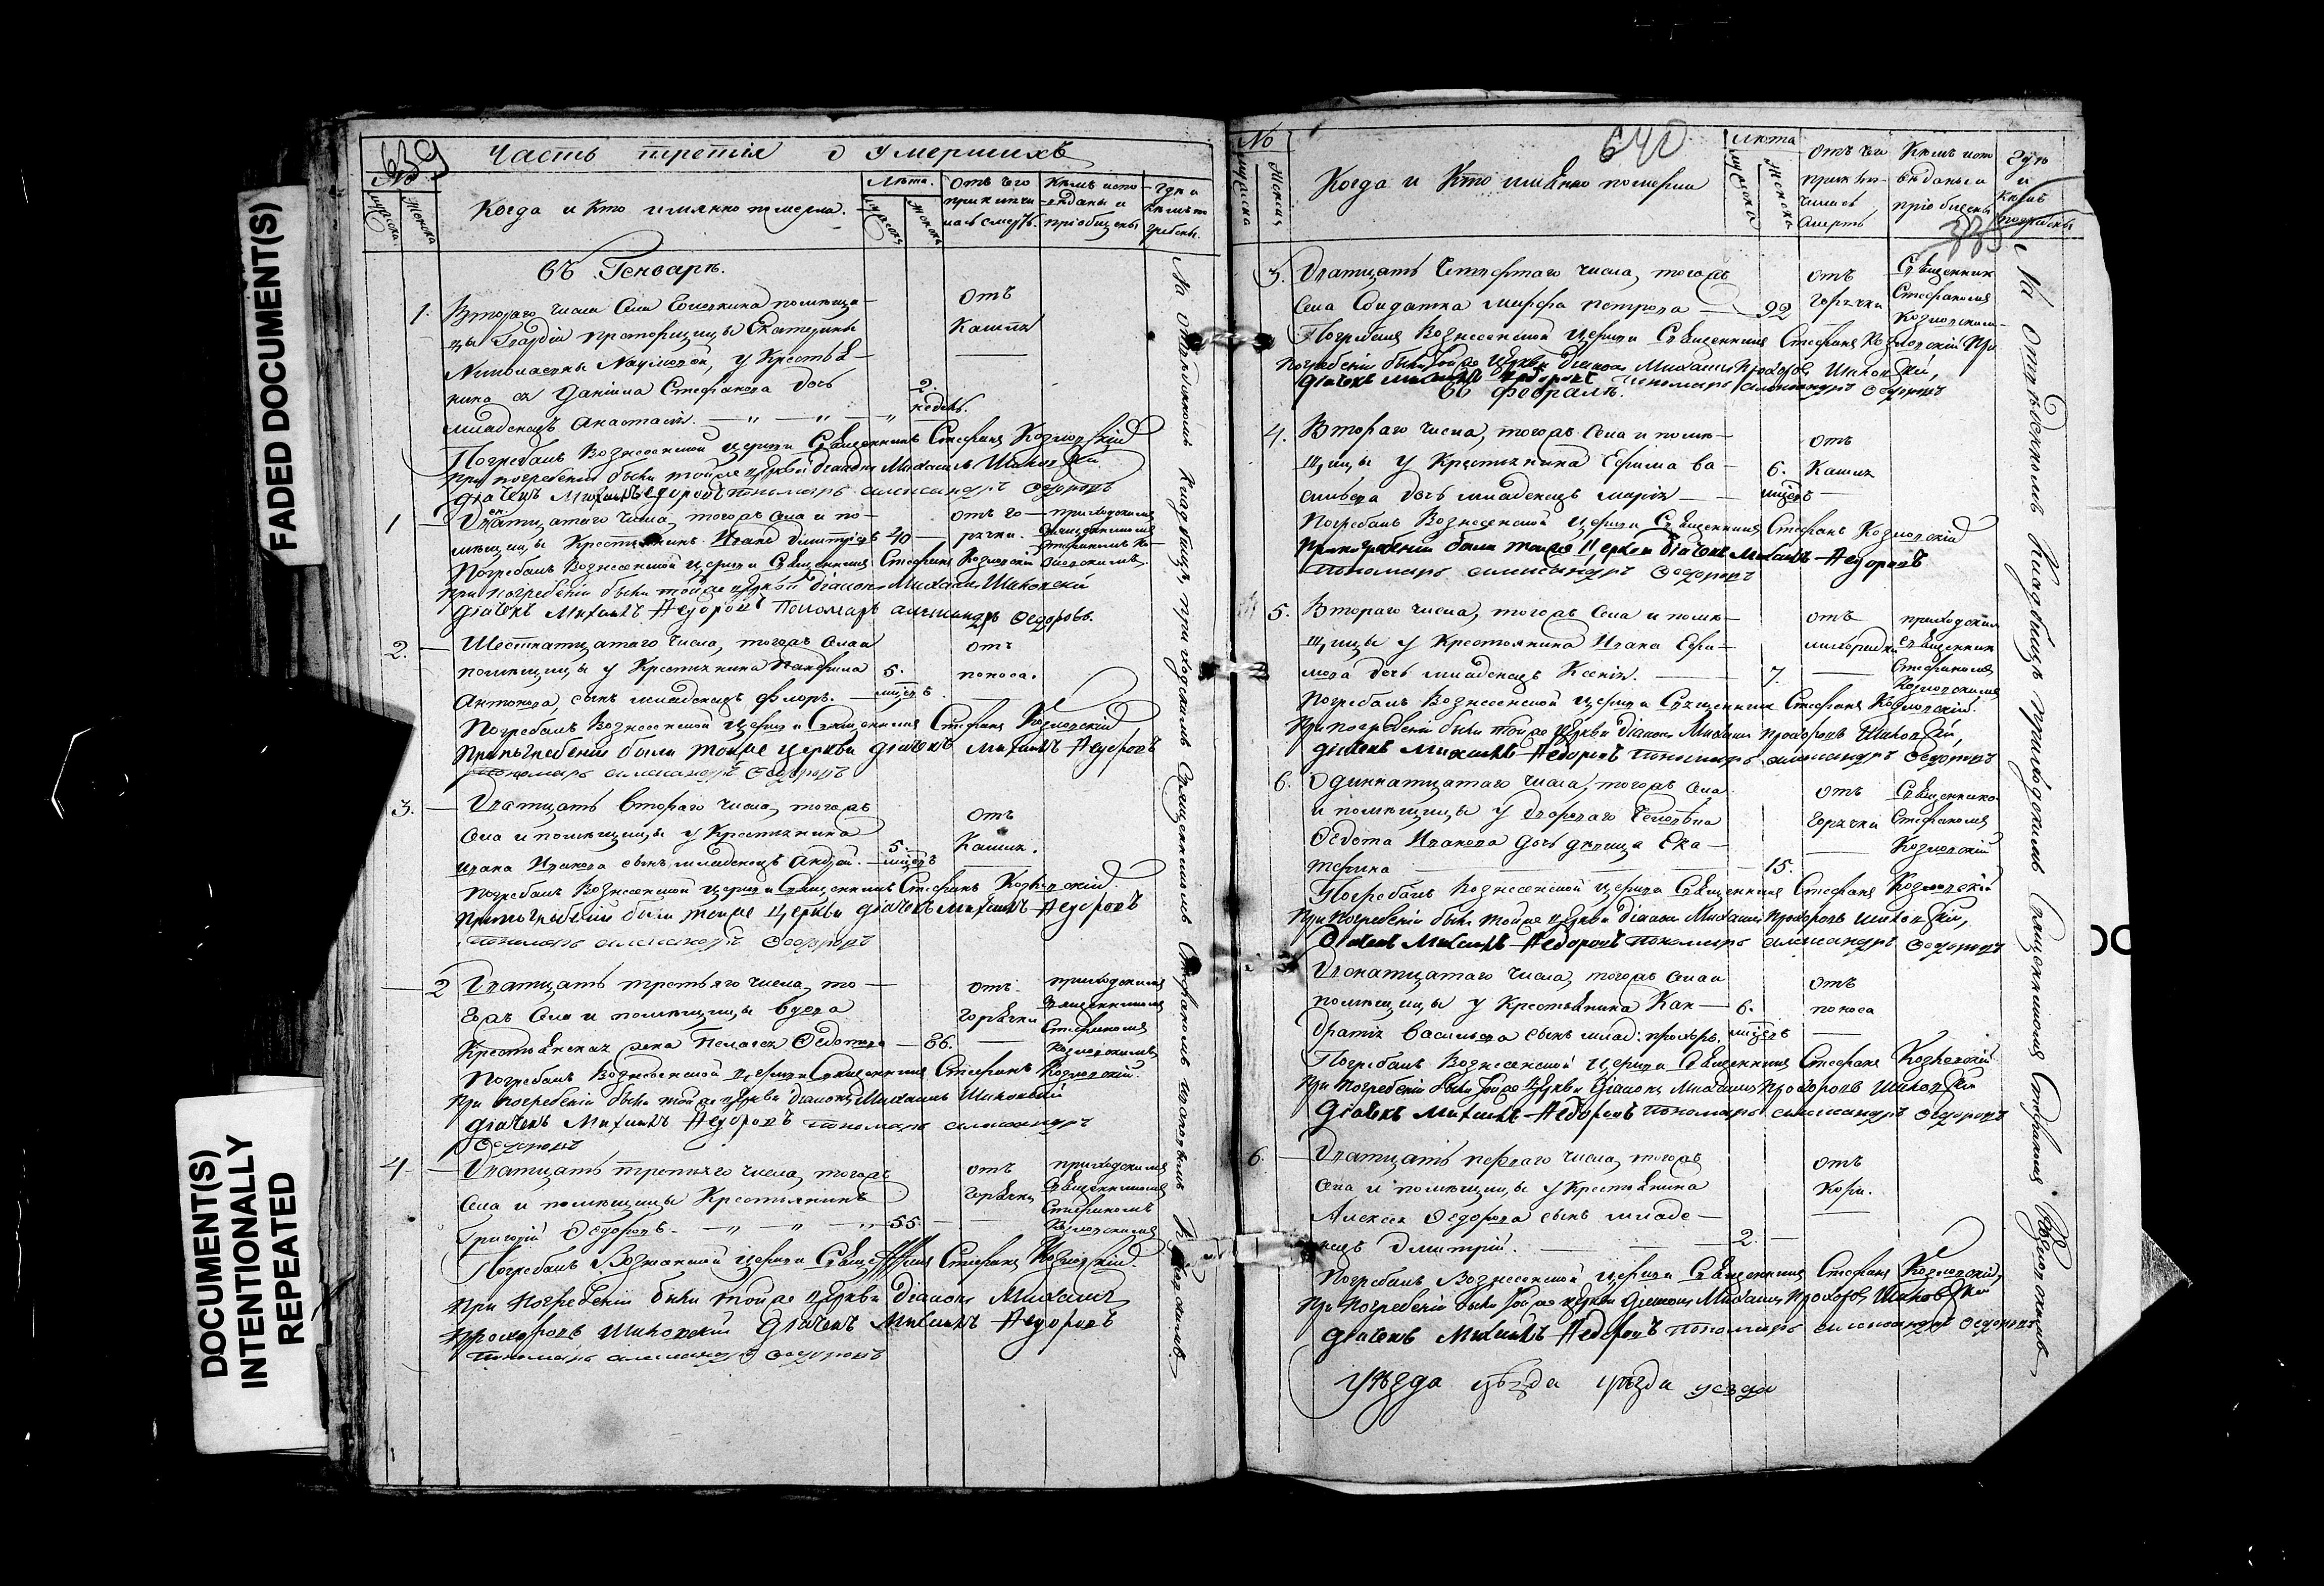 FADED DOCUMENT(S)
DOCUMENT(S)
INTENTIONALLY
REPEATED
639
Часть третія о умершихъ
№
мужеска
женска
Когда и кто имянно померли.
Лѣта.
мужеска
женска
Отъ чего приключилась смерть.
Кѣмъ исповѣданы и пріобщены
Гдѣ и кѣмъ погребены.
Въ Генварѣ.
1. Втораго числа Села помѣщи-
цы Гвардіи прапорщицы Екатерины
Николаевны Наумовой, у Крестья-
нина Даніила Стефанова дочь
младенецъ Анастасія. — „ — „ — „ 2. недѣль.
отъ
Кашля
Погребалъ Вознесенской церкви Священникъ Стефанъ Козловскій
При погребеніи были тойже церкви діаконъ Михаилъ Шиповскій
дьячекъ Михаилъ Федоровъ пономарь Александръ Федоровъ
1 — числа, тогожъ Села и по-
мѣщицы Крестьянинъ Иванъ Дмитріевъ 40 —
отъ го-
рячки.
приходскимъ
священникомъ
Стефаномъ Ко-
зловскимъ.
Погребалъ Вознесенской церкви Священникъ Стефанъ Козловскій
При погребеніи были тойже церкви діаконъ Михаилъ Шиповскій
дьячекъ Михаилъ Федоровъ пономарь Александръ Федоровъ.
2. — Шестнатцатаго числа, тогожъ Села и
помѣщицы у Крестьянина Панфила 5.
Антонова, сынъ младенецъ Флоръ. — мѣсяцъ
отъ
поноса.
Погребалъ Вознесенской церкви Священникъ Стефанъ Козловскій
При погребеніи были тойже церкви дьячекъ Михаилъ Федоровъ
пономарь Александръ Федоровъ
3. — Дватцать втораго числа, тогожъ
Села и помѣщицы у Крестьянина 5.
Ивана Иванова сынъ младенецъ Андрей. — мѣсяцъ
отъ
Кашля.
Погребалъ Вознесенской церкви Священникъ Стефанъ Козловскій
При погребеніи были тойже церкви дьячекъ Михаилъ Федоровъ
пономарь Александръ Федоровъ
— 2 Дватцать третьяго числа, то-
гожъ Села и помѣщицы вдова
Крестьянская жена Пелагея Федотова — 66.
отъ
горячки
приходскимъ
священникомъ
Стефаномъ
Козловскимъ
Погребалъ Вознесенской церкви Священникъ Стефанъ Козловскій.
При погребеніи были тойже церкви діаконъ Михаилъ Шиповскій
дьячекъ Михаилъ Федоровъ пономарь Александръ
Федоровъ
4. — Дватцать третьяго числа, тогожъ
Села и помѣщицы Крестьянинъ
Григорій Федоровъ. — „ — „ — „ 55. —
отъ
горячки
приходскимъ
священникомъ
Стефаномъ
Козловскимъ
Погребалъ Вознесенской церкви Священникъ Стефанъ Козловскій.
При погребеніи были тойже церкви діаконъ Михаилъ
Прохоровъ Шиповскій дьячекъ Михаилъ Федоровъ
пономарь Александръ Федоровъ
На отведенномъ Кладбищѣ, приходскимъ Священникомъ Стефаномъ Козловскимъ.
640
№
мужеска
женска
Когда и Кто имянно померли
Лѣта
мужеска
женска
Отъ чего приключилась смерть
Кѣмъ исповѣданы и пріобщены
Гдѣ и Кѣмъ погребены
3. Дватцать Четвертаго числа, тогожъ
Села Солдатка Марфа Петрова — 92
отъ
горячки
Священник
Стефаномъ
Козловским
Погребалъ Вознесенской церкви Священникъ Стефанъ Козловскій При
погребеніи были тойже церкви діаконъ Михаилъ Прохоровъ Шиповскій,
дьячекъ Михаилъ Федоровъ пономарь Александръ Федоровъ
въ Февралѣ.
4. Втораго числа, тогожъ Села и помѣ-
щицы у Крестьянина Ефима Ва- 6.
сильева дочь младенецъ Марія — мѣсяцъ
отъ
Кашля
Погребалъ Вознесенской церкви Священникъ Стефанъ Козловскій
При погребеніи были тойже Церкви дьячекъ Михаилъ Федоровъ
пономарь Александръ Федоровъ
5. Втораго числа, тогожъ Села и помѣ-
щицы у Крестьянина Ивана Ефи-
мова дочь младенецъ Ксенія. — 7.
отъ
лихорадки
приходским
священник
Стефаномъ
Козловскимъ
Погребалъ Вознесенской церкви Священникъ Стефанъ Козловскій.
При погребеніи были тойже церкви діаконъ Михаилъ Прохоровъ Шиповскій,
дьячекъ Михаилъ Федоровъ пономарь Александръ Федоровъ
6. Одиннатцатаго числа, тогожъ Села
и помѣщицы у Дворового Человѣка
Федота Иванова дочь девица Ека-
терина — 15.
отъ
горячки
Священнико
Стефаномъ
Козловскій
Погребалъ Вознесенской церкви Священникъ Стефанъ Козловскій
При погребеніи были тойже церкви діаконъ Михаилъ Прохоровъ Шиповскій,
Дьячекъ Михаилъ Федоровъ пономарь Александръ Федоровъ
5. — числа, тогожъ Села и
помѣщицы у Крестьянина Кон- 6.
дратія Васильева сынъ млад: Прохоръ. мѣсяцъ
отъ
поноса
Погребалъ Вознесенской церкви Священникъ Стефанъ Козловскій
При погребеніи были тойже церкви діаконъ Михаилъ Прохоровъ Шиповскій
дьячекъ Михаилъ Федоровъ пономарь Александръ Федоровъ
6 — Дватцать перваго числа, тогожъ
Села и помѣщицы у Крестьянина
Алексея Федорова сынъ младе-
нецъ Дмитрій. — 2. —
отъ
Кори.
Погребалъ Вознесенской церкви Священникъ Стефанъ Козловскій,
При погребеніи были тойже церкви діаконъ Михаилъ Прохоровъ Шиповскій
дьячекъ Михаилъ Федоровъ пономарь Александръ Федоровъ
уѣзда уѣзда уѣзда уезда
На отведенномъ Кладбищѣ приходскимъ Священникомъ Стефаномъ Козловскимъ